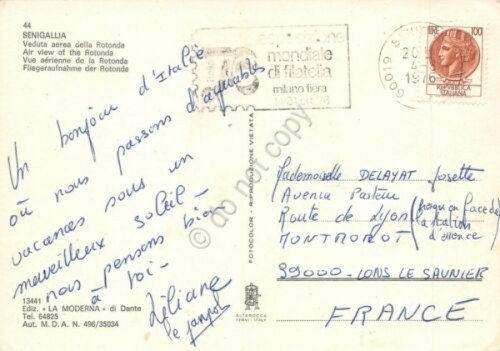 44
SENIGALLIA
Veduta aerea della Rotonda
Air view of the Rotonda
Vue aérienne de la Rotonda
Fliegeraufnahme der Rotonda
esposizione
mondiale
di filatelia
milano fiera
1976
LIRE 100
REPUBBLICA
ITALIANA
Un bonjour d'Italie
où nous passons d'agréables
vacances sous un
merveilleux soleil -
nous pensons bien
à toi -
Liliane
FOTOCOLOR - RIPRODUZIONE VIETATA
do not copy
Mademoiselle DELAYAT Josette
Avenue Pasteur
Route de Lyon (presqu'en face de
la station
d'essence)
MONTMOROT
39000 - LONS LE SAUNIER
FRANCE
13441
Ediz. « LA MODERNA » di Dante
Tel. 64825
Aut. M. D. A. N. 496/35034
ALTEROCCA
TERNI - ITALY